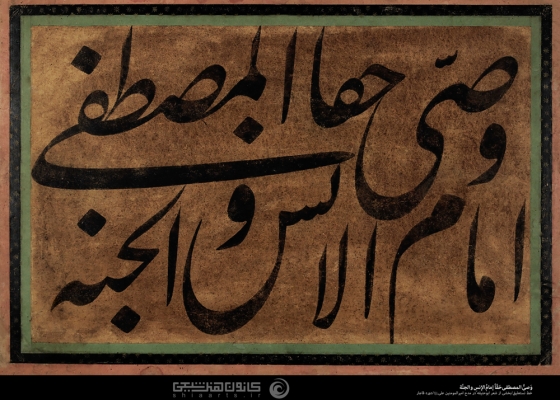 وصّی المصطفی حقا
امام الانس و الجنه
کانون هنر شیعی
shiaarts.ir
وَصیُّ المصطفی حَقّاً إمامُ الإنسِ والجنَّة